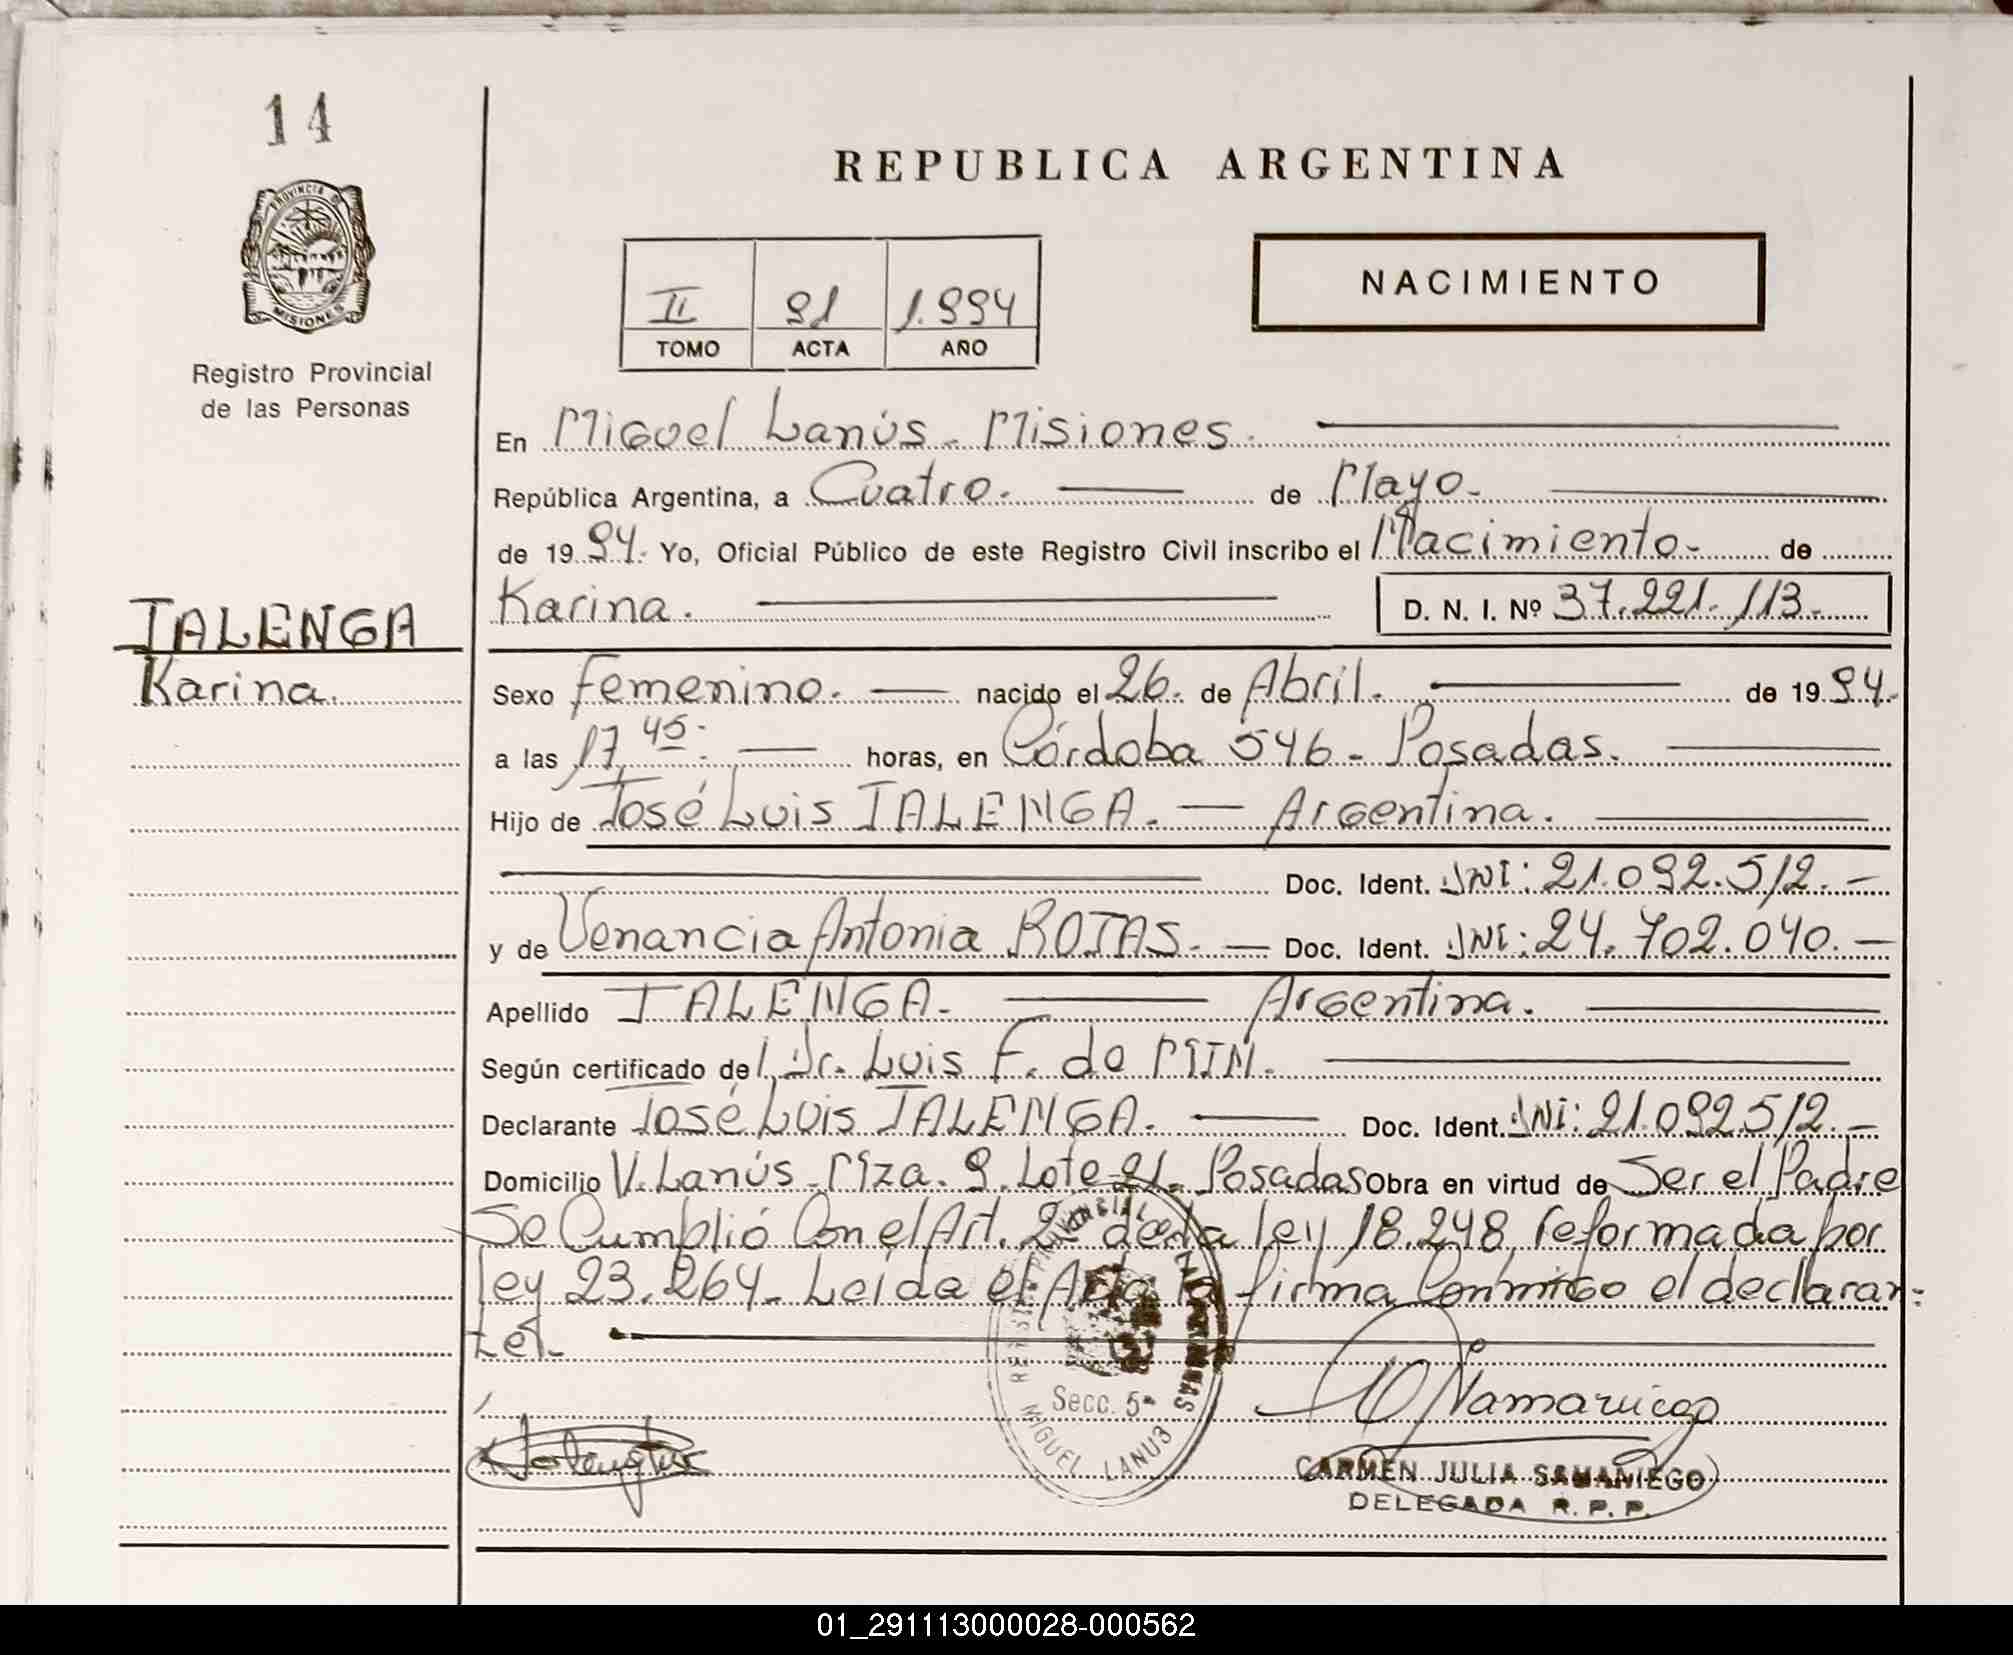 14
REPUBLICA ARGENTINA
PROVINCIA DE
MISIONES
NACIMIENTO
II 91 1.994
TOMO ACTA AÑO
Registro Provincial
de las Personas
En Miguel Lanús - Misiones.
República Argentina, a Cuatro. de Mayo.
de 1994. Yo, Oficial Público de este Registro Civil inscribo el Nacimiento. de
Karina. D. N. I. Nº 37.221.113.
TALENGA
Karina.
Sexo Femenino. nacido el 26. de Abril. de 1994.
a las 17,45. horas, en Córdoba 546 - Posadas.
Hijo de José Luis TALENGA. — Argentina.
Doc. Ident. DNI: 21.092.512. —
y de Venancia Antonia ROJAS. — Doc. Ident. DNI: 24.702.040. —
Apellido TALENGA. Argentina.
Según certificado del Dr. Luis F. de
Declarante José Luis TALENGA. Doc. Ident. DNI: 21.092.512. —
Domicilio V. Lanús - Mza. 9. Lote 21 - Posadas Obra en virtud de Ser el Padre
Se Cumplió Con el Art. 2º de la ley 18.248, reformada por
ley 23.264. Leída el Acta la firma Conmigo el declaran=
te.
REGISTRO PROVINCIAL DE LAS PERSONAS
Secc. 5ª
MIGUEL LANUS
CARMEN JULIA SAMANIEGO
DELEGADA R. P. P.
01_291113000028-000562